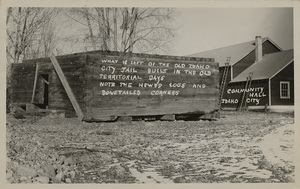 WHAT IS LEFT OF THE OLD IDAHO
CITY JAIL BUILT IN THE OLD
TERRITORIAL DAYS
NOTE THE HEWED LOGS AND
DOVETAILED CORNERS
COMMUNITY
HALL
IDAHO CITY